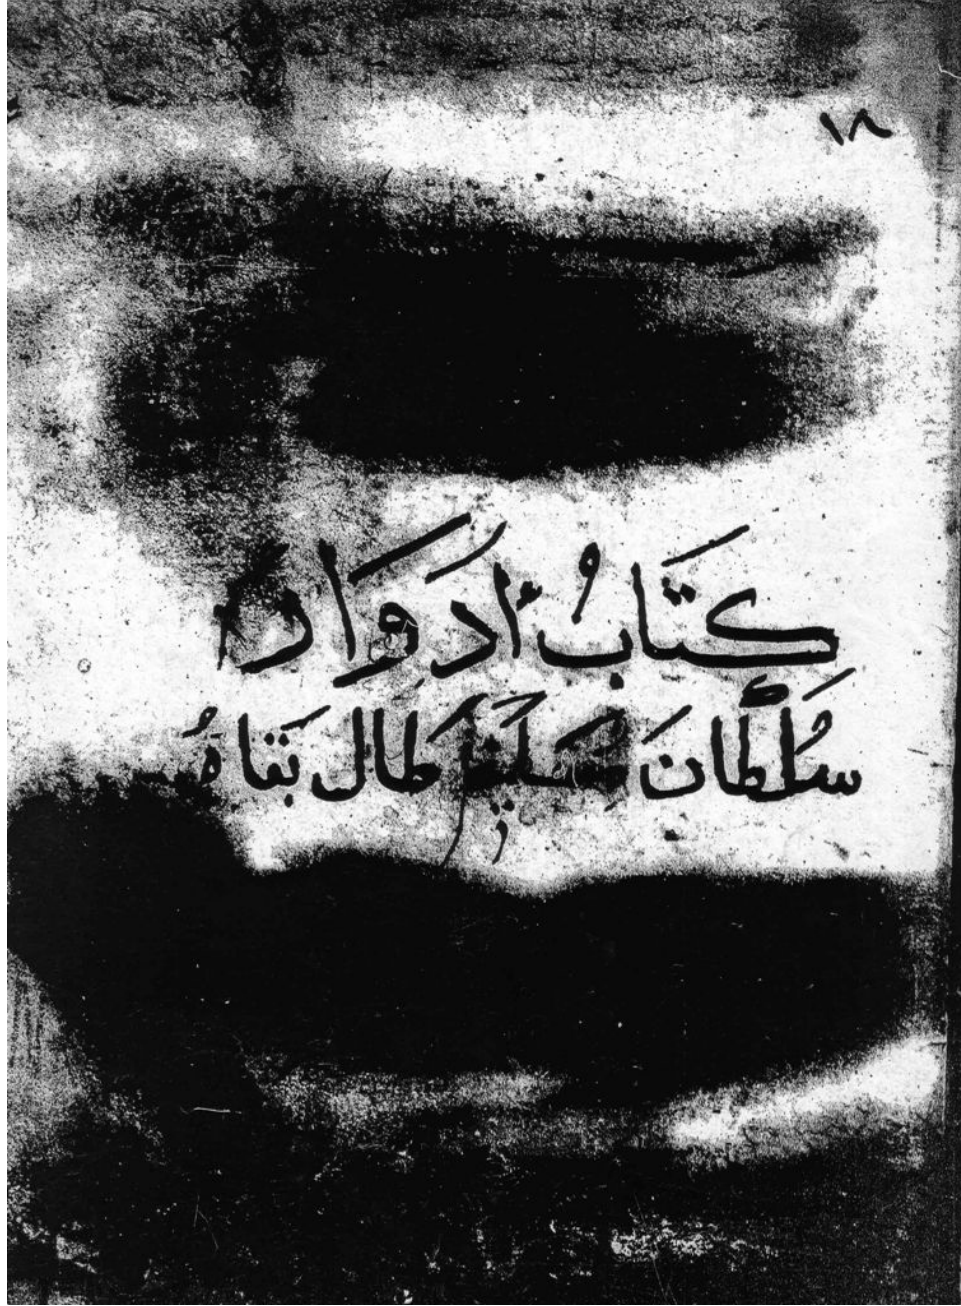 ١٨
كِتَابُ ادَوِار
سُلْطَانَ طَالَ بَقَاهُ